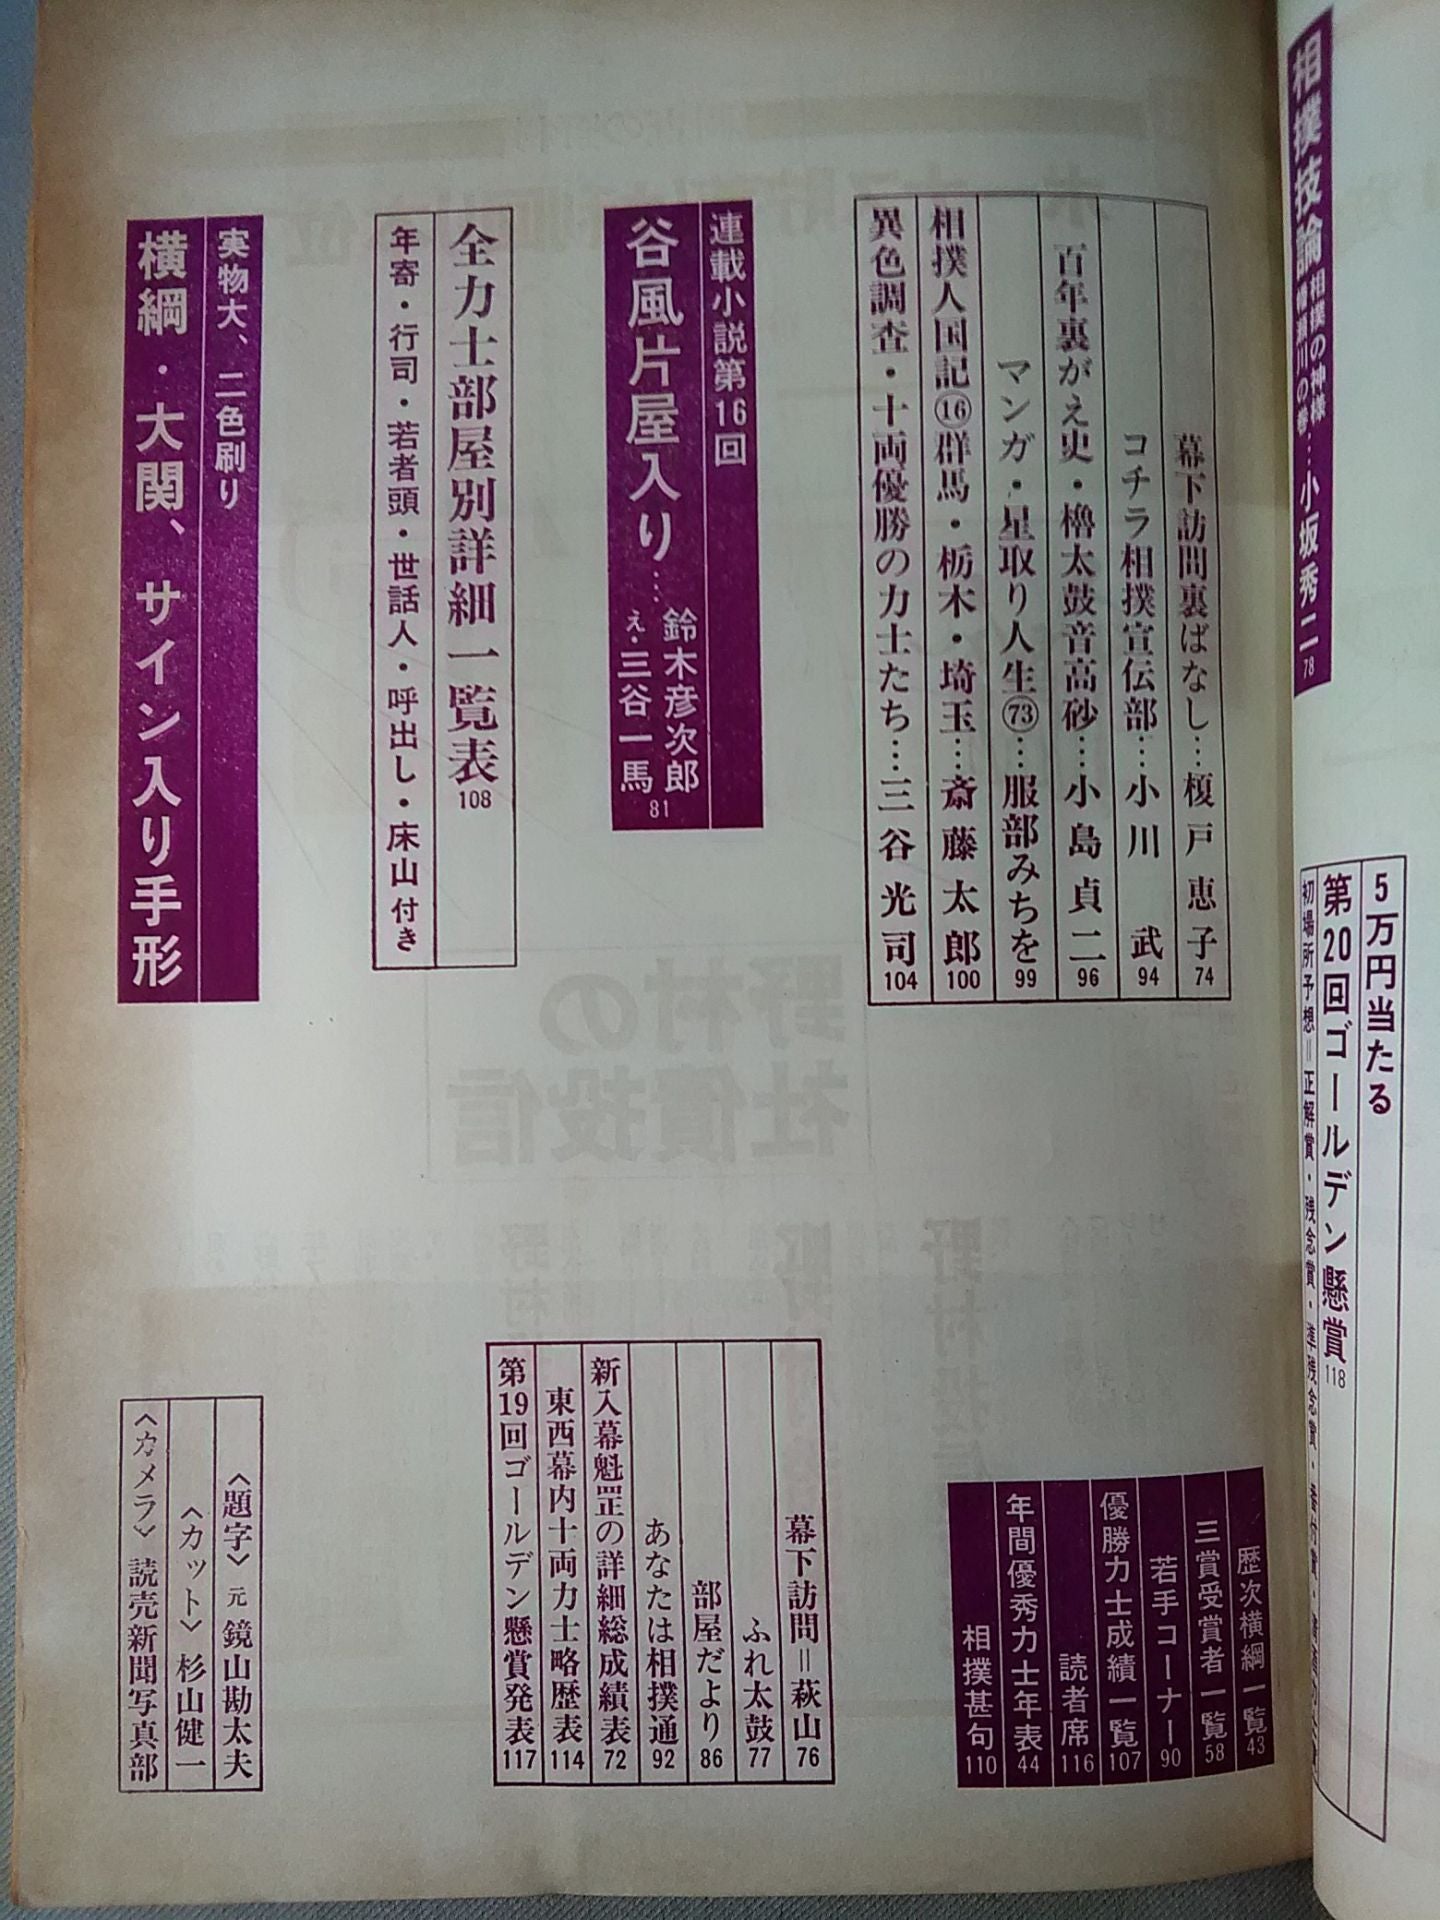 相撲技論 相撲の神様 幡瀬川の巻…小坂秀二 78
5万円当たる
第20回ゴールデン懸賞 118
初場所予想＝正解賞・残念賞・準残念賞・
幕下訪問裏ばなし…榎戸恵子 74
コチラ相撲宣伝部…小川武 94
百年裏がえ史・櫓太鼓音高砂…小島貞二 96
マンガ・星取り人生㊳…服部みちを 99
相撲人国記⑯群馬・栃木・埼玉…斎藤太郎 100
異色調査・十両優勝の力士たち…三谷光司 104
連載小説第16回
谷風片屋入り…鈴木彦次郎
え・三谷一馬 81
全力士部屋別詳細一覧表 108
年寄・行司・若者頭・世話人・呼出し・床山付き
実物大、二色刷り
横綱・大関、サイン入り手形
歴次横綱一覧 43
三賞受賞者一覧 58
若手コーナー 90
優勝力士成績一覧 107
読者席 116
年間優秀力士年表 44
相撲甚句 110
幕下訪問＝萩山 76
ふれ太鼓 77
部屋だより 86
あなたは相撲通 92
新入幕魁罡の詳細総成績表 72
東西幕内十両力士略歴表 114
第19回ゴールデン懸賞発表 117
〈題字〉元 鏡山勘太夫
〈カット〉杉山健一
〈カメラ〉読売新聞写真部